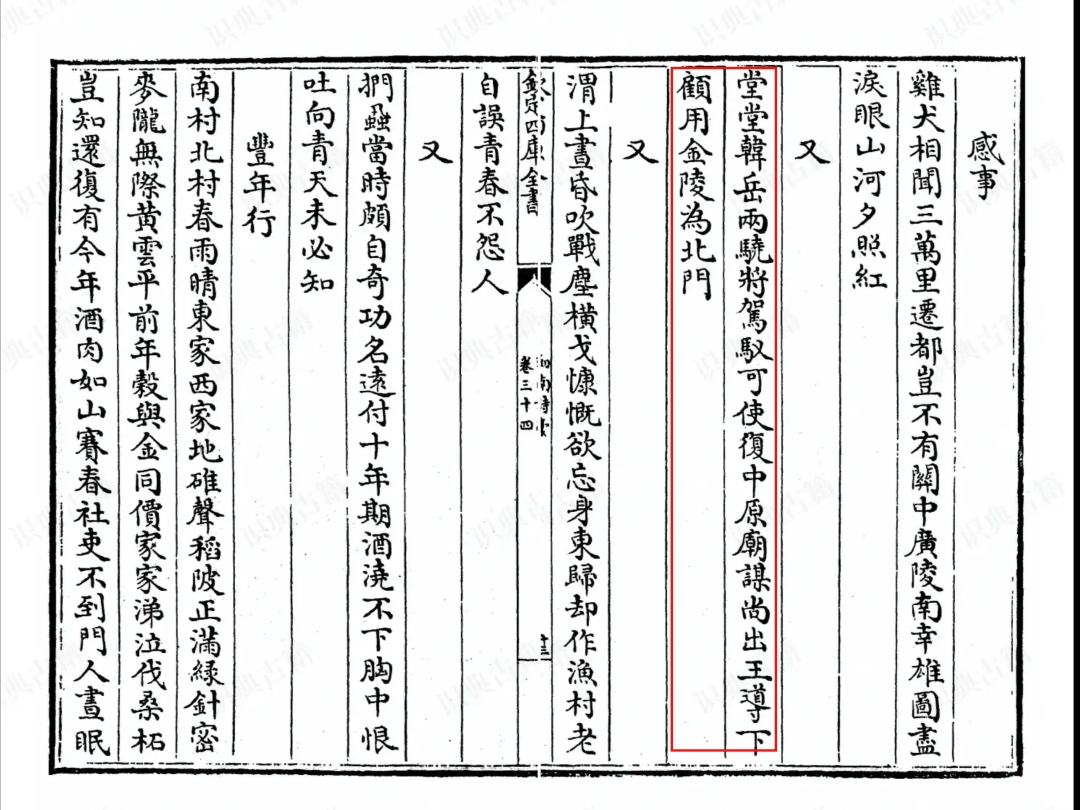 感事
雞犬相聞三萬里遷都豈不有關中廣陵南幸雄圖盡
淚眼山河夕照紅
又
堂堂韓岳兩驍將駕馭可使復中原廟謀尚出王導下
顧用金陵為北門
又
渭上晝昏吹戰塵橫戈慷慨欲忘身東歸却作漁村老
欽定四庫全書
卷三十四
自誤青春不怨人
又
捫蝨當時頗自奇功名遠付十年期酒澆不下胸中恨
吐向青天未必知
豐年行
南村北村春雨晴東家西家地碓聲稻陂正滿緑針密
麥隴無際黄雲平前年穀與金同價家家涕泣伐桑柘
豈知還復有今年酒肉如山賽春社吏不到門人晝眠
识典古籍